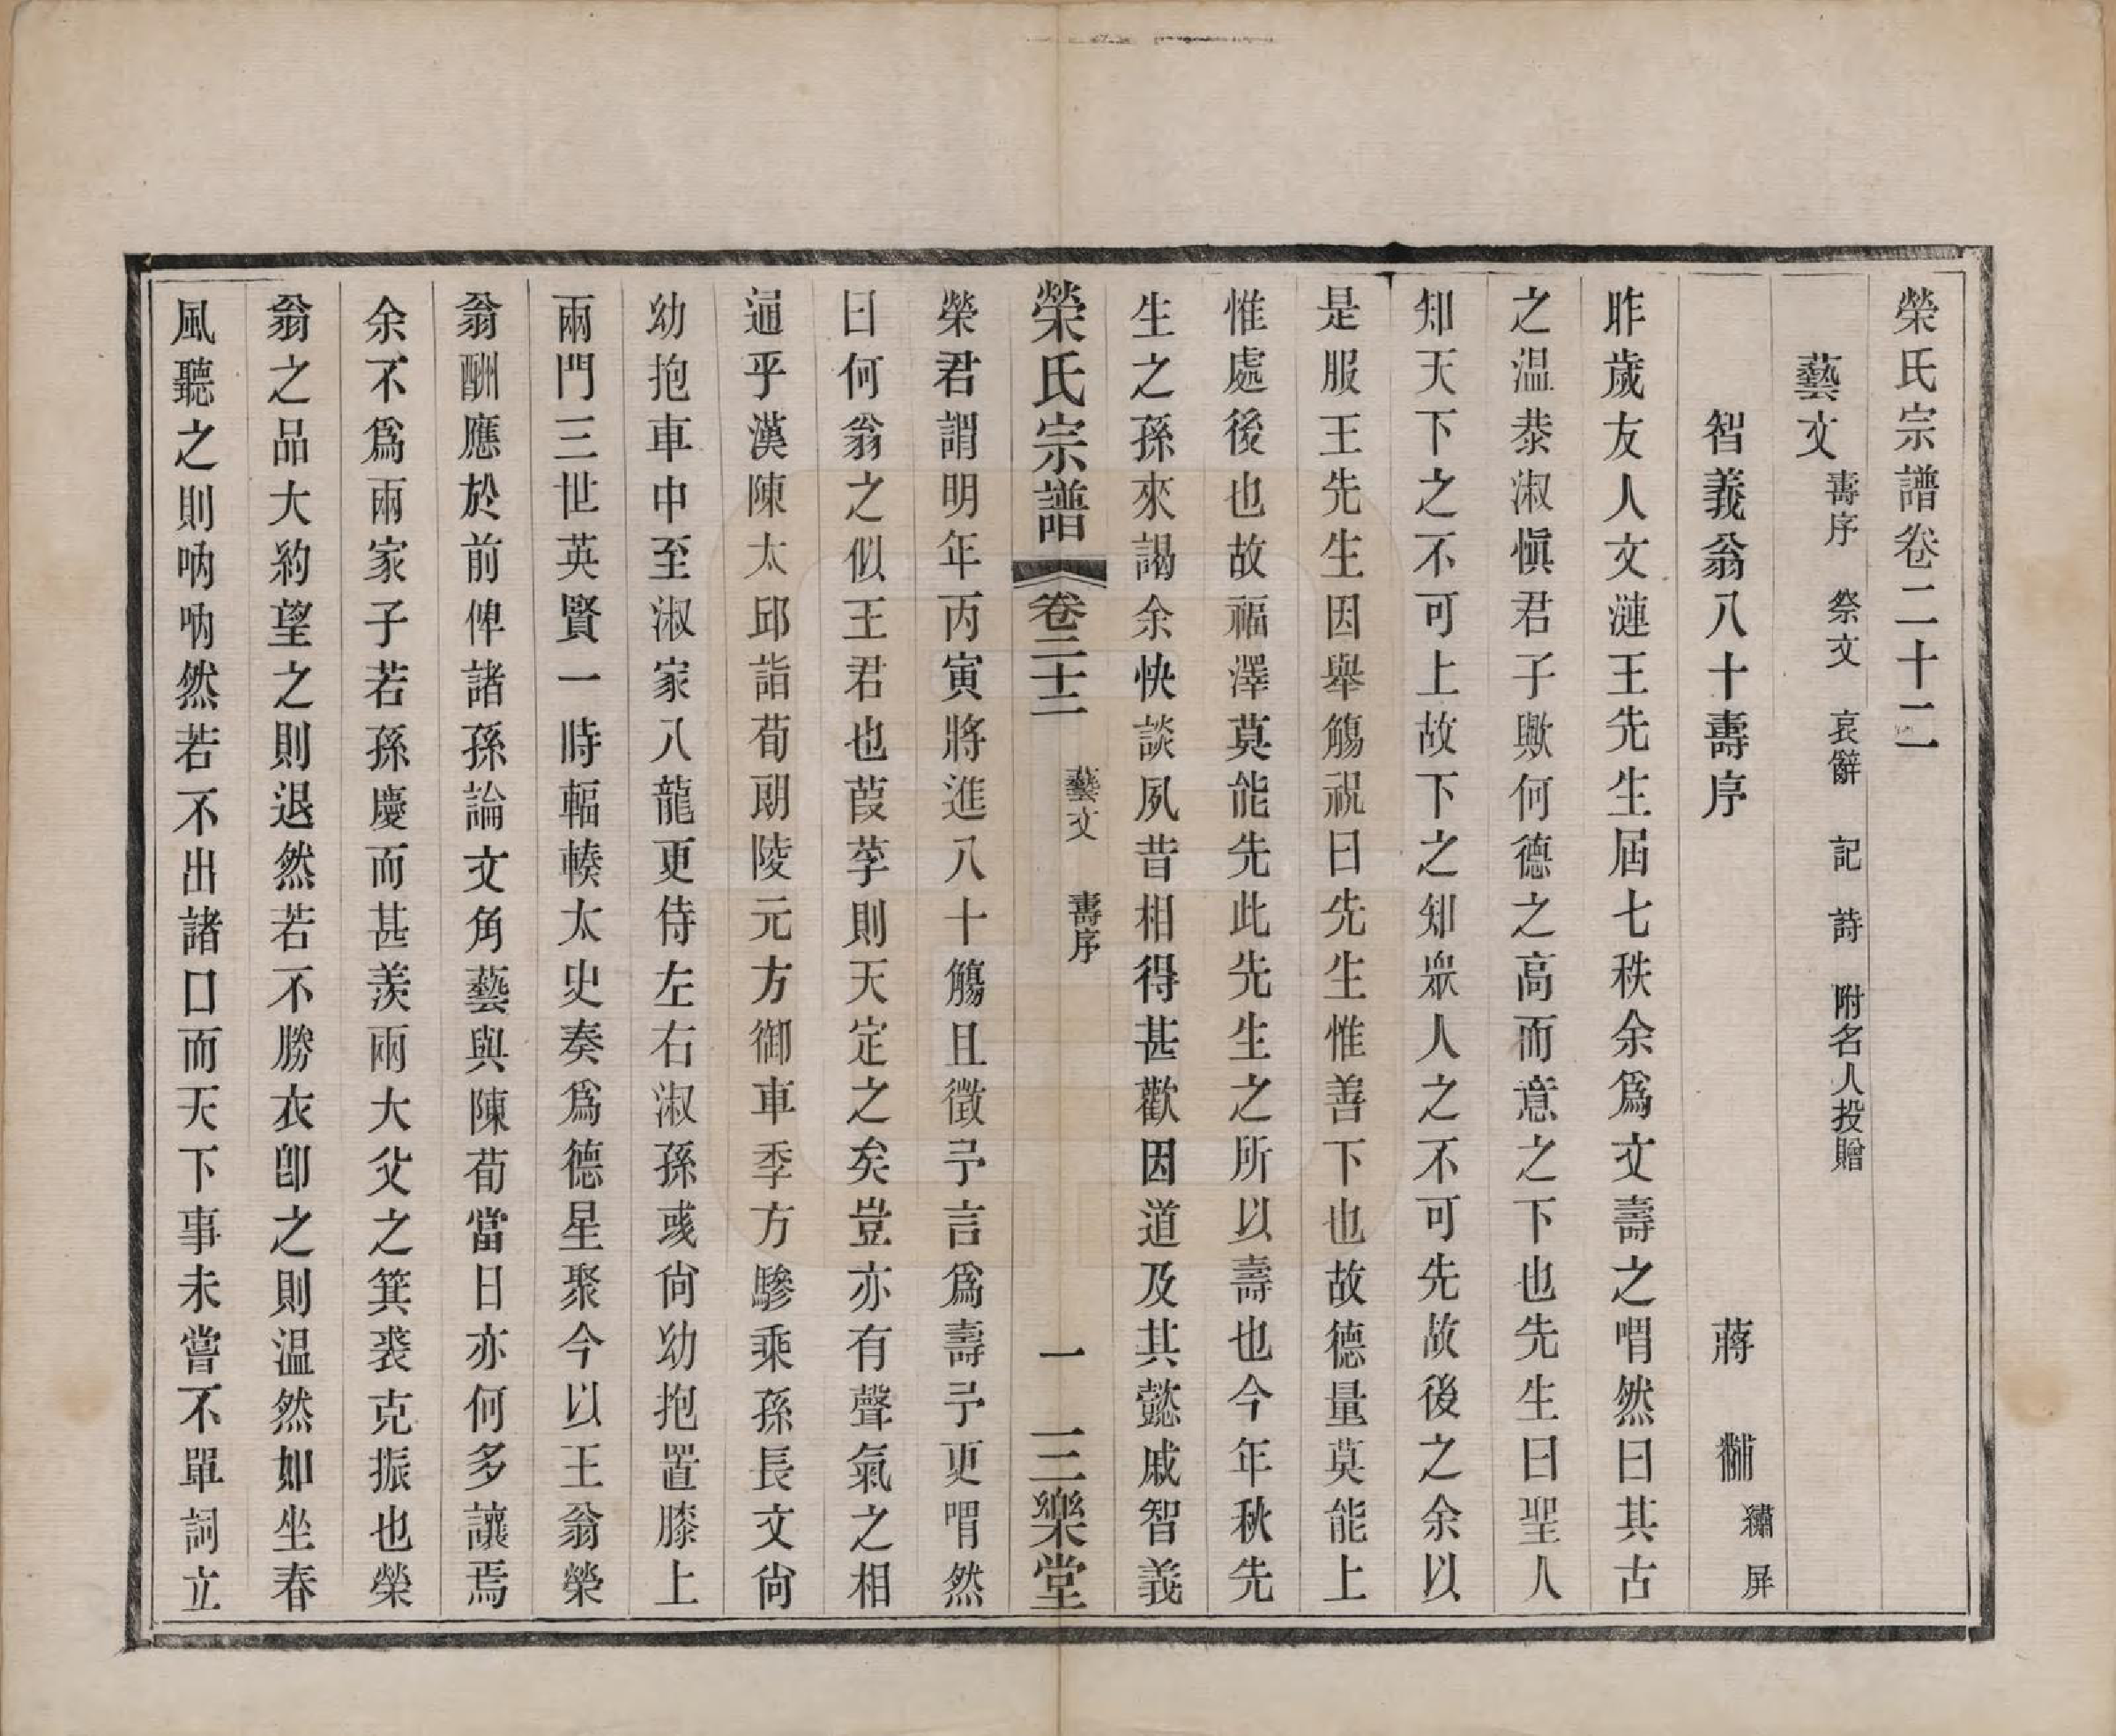 榮氏宗譜卷二十二
藝文 壽序 祭文 哀辭 記 詩 附名人投贈
智義翁八十壽序 蔣黼 繡屏
昨歲友人文漣王先生屆七秩余爲文壽之喟然曰其古
之温恭淑愼君子歟何德之高而意之下也先生曰聖人
知天下之不可上故下之知衆人之不可先故後之余以
是服王先生因舉觴祝曰先生惟善下也故德量莫能上
惟處後也故福澤莫能先此先生之所以壽也今年秋先
生之孫來謁余快談夙昔相得甚歡因道及其懿戚智義
榮氏宗譜 卷二十二 藝文 壽序 一 三樂堂
榮君謂明年丙寅將進八十觴且徵予言爲壽予更喟然
曰何翁之似王君也葭莩則天定之矣豈亦有聲氣之相
通乎漢陳太邱詣荀朗陵元方御車季方驂乘孫長文尙
幼抱車中至淑家八龍更侍左右淑孫彧尙幼抱置膝上
兩門三世英賢一時輻輳太史奏爲德星聚今以王翁榮
翁酬應於前俾諸孫論文角藝與陳荀當日亦何多讓焉
余不爲兩家子若孫慶而甚羨兩大父之箕裘克振也榮
翁之品大約望之則退然若不勝衣卽之則温然如坐春
風聽之則吶吶然若不出諸口而天下事未嘗不單詞立